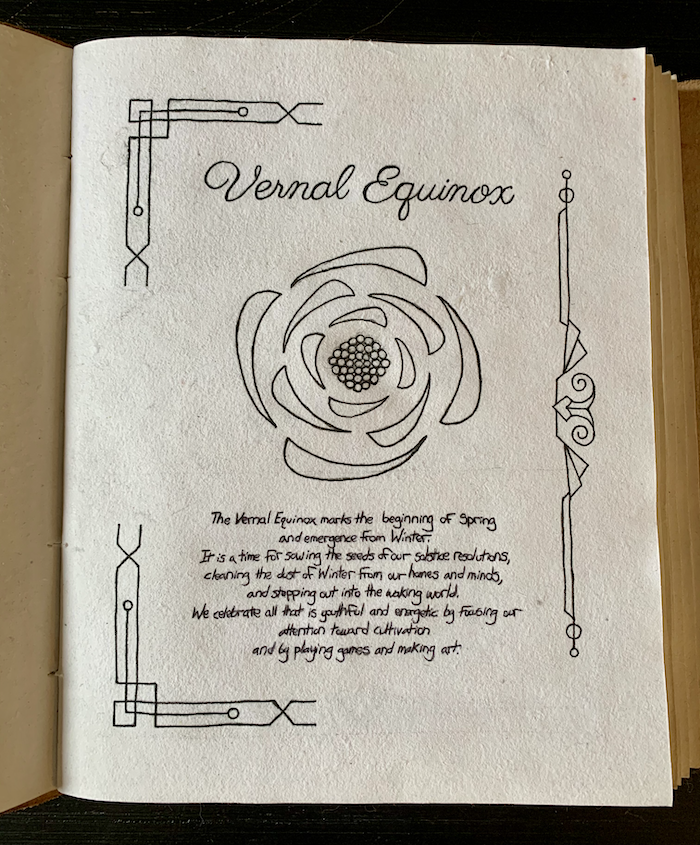 Vernal Equinox
The Vernal Equinox marks the beginning of Spring
and emergence from Winter.
It is a time for sowing the seeds of our solstice resolutions,
cleaning the dust of Winter from our homes and minds,
and stepping out into the waking world.
We celebrate all that is youthful and energetic by focusing our
attention toward cultivation
and by playing games and making art.